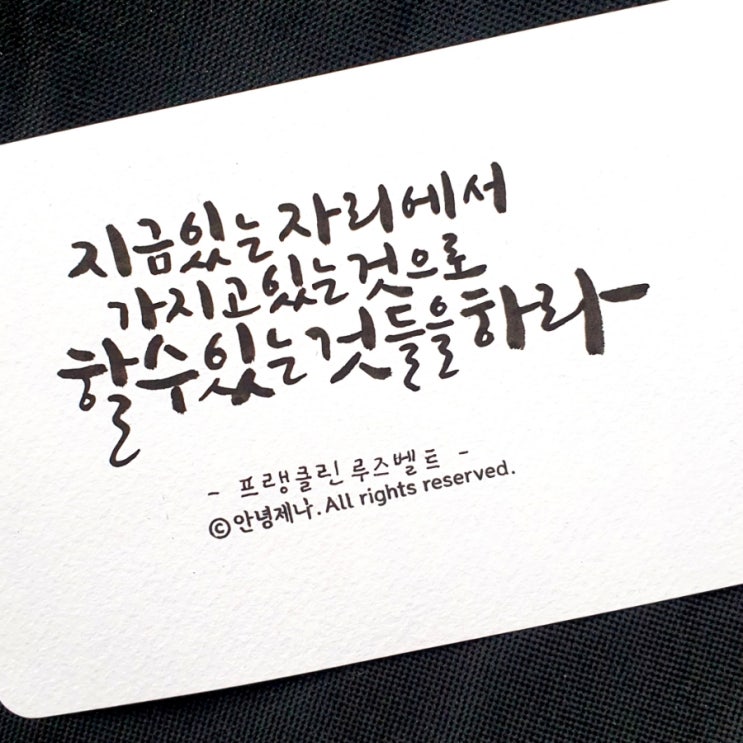 지금있는자리에서
가지고있는것으로
할수있는것들을하라
- 프랭클린 루즈벨트 -
©안녕제나. All rights reserved.